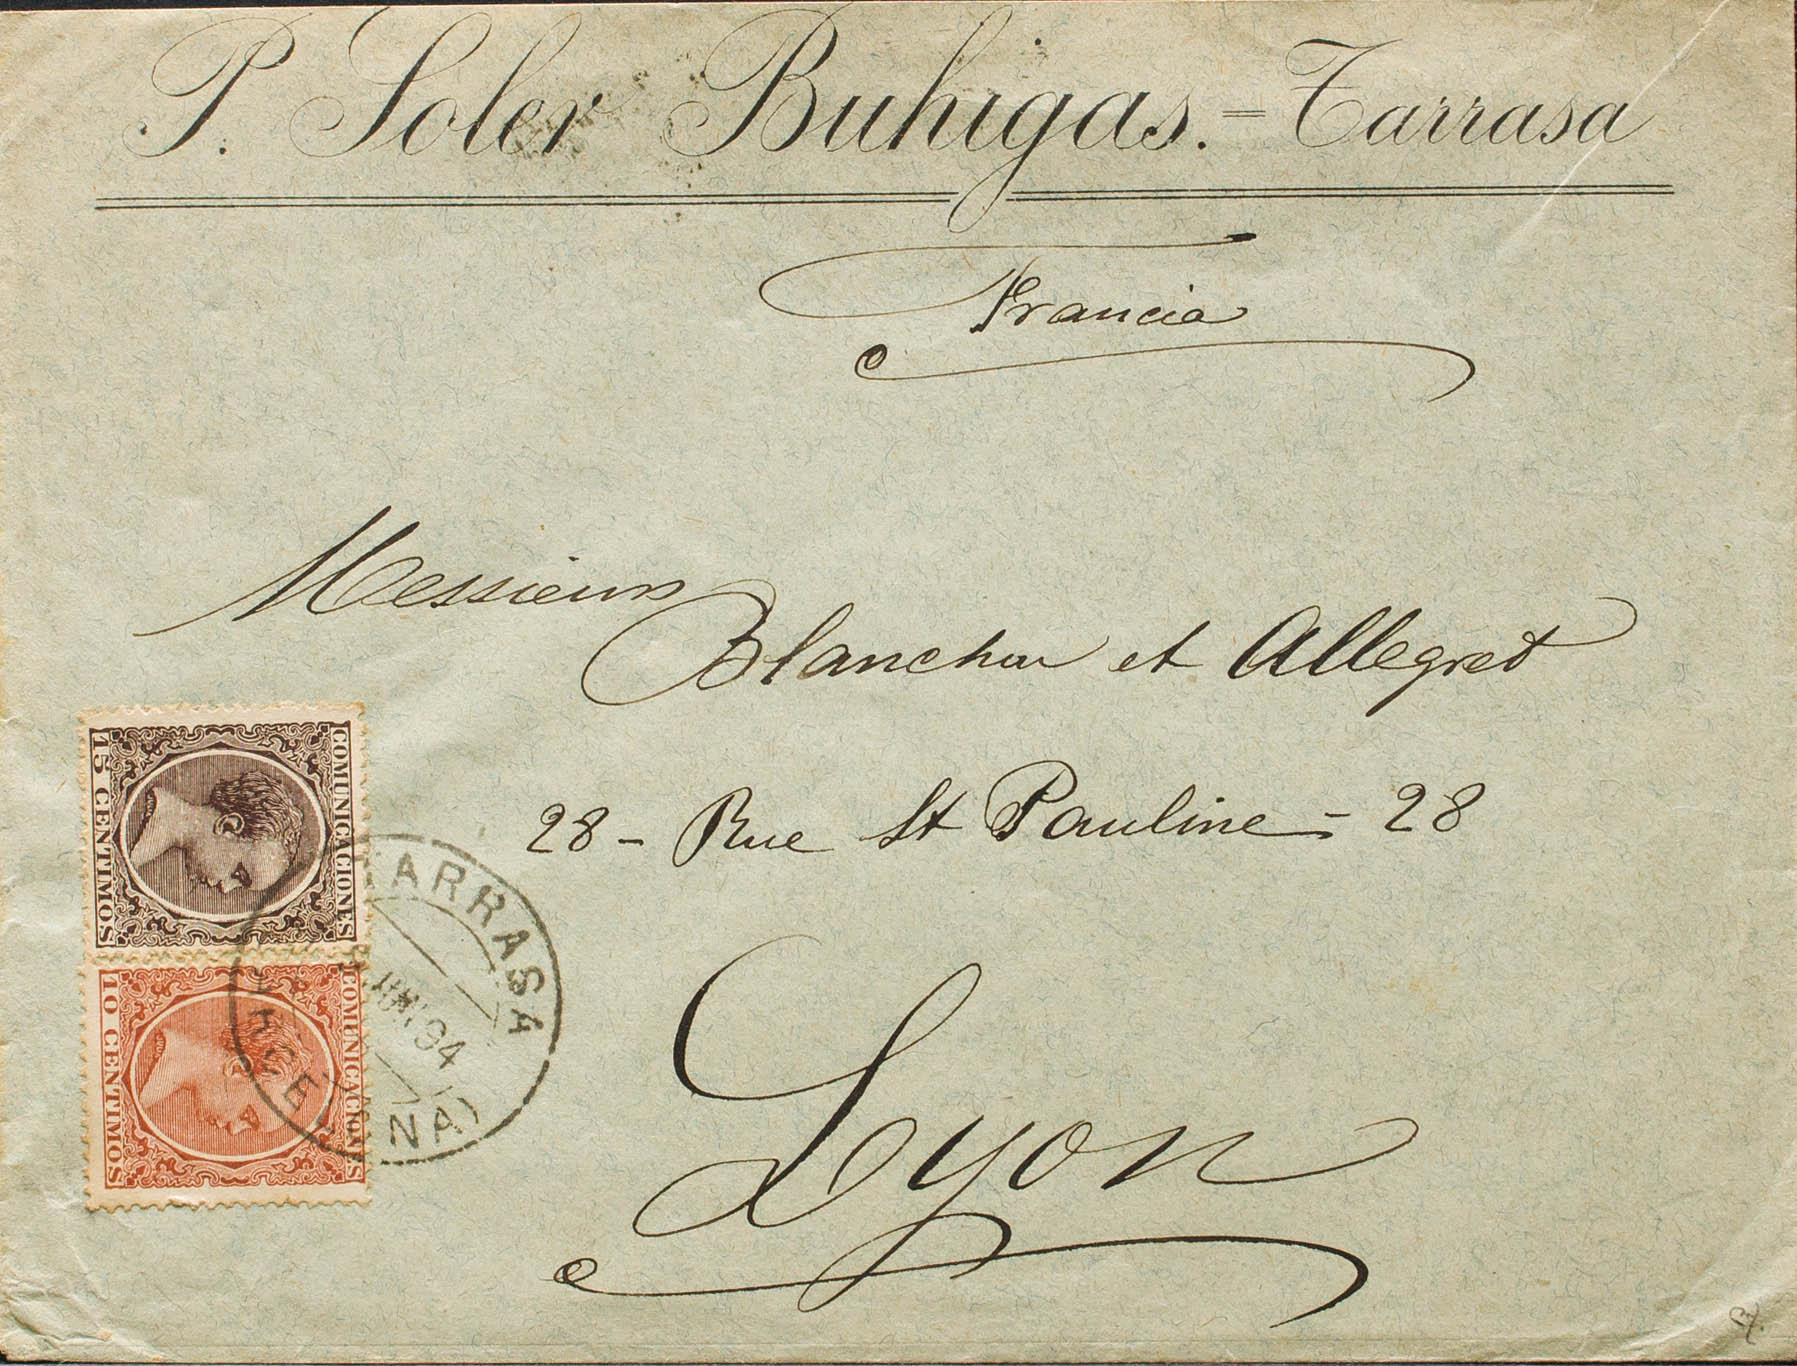 P. Soler Buhigas. = Tarrasa
Francia
Messieurs
et Allegret
28 - Rue St Pauline - 28
Lyon
COMUNICACIONES
15 CENTIMOS
COMUNICACIONES
10 CENTIMOS
TARRASA
JUN 94